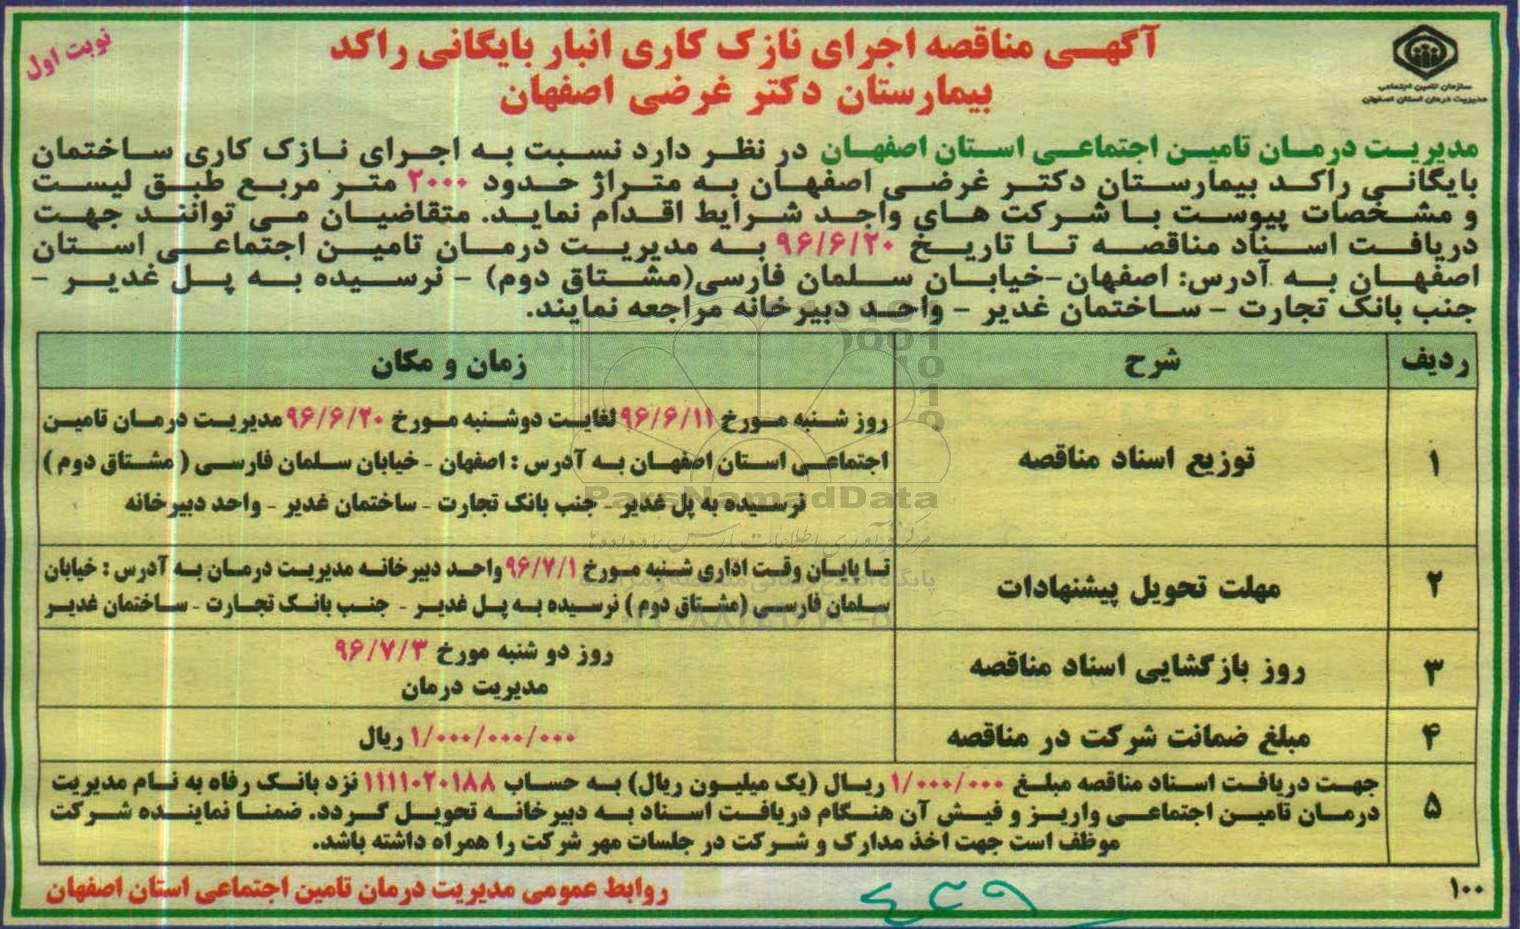 نوبت اول
آگهی مناقصه اجرای نازک کاری انبار بایگانی راکد
بیمارستان دکتر غرضی اصفهان
سازمان تامین اجتماعی
مدیریت درمان استان اصفهان
مدیریت درمان تامین اجتماعی استان اصفهان در نظر دارد نسبت به اجرای نازک کاری ساختمان
بایگانی راکد بیمارستان دکتر غرضی اصفهان به متراژ حدود ۲۰۰۰ متر مربع طبق لیست
و مشخصات پیوست با شرکت های واجد شرایط اقدام نماید. متقاضیان می توانند جهت
دریافت اسناد مناقصه تا تاریخ ۹۶/۶/۲۰ به مدیریت درمان تامین اجتماعی استان
اصفهان به آدرس: اصفهان-خیابان سلمان فارسی(مشتاق دوم) - نرسیده به پل غدیر -
جنب بانک تجارت - ساختمان غدیر - واحد دبیرخانه مراجعه نمایند.
ردیف شرح زمان و مکان
۱ توزیع اسناد مناقصه
روز شنبه مورخ ۹۶/۶/۱۱ لغایت دوشنبه مورخ ۹۶/۶/۲۰ مدیریت درمان تامین
اجتماعی استان اصفهان به آدرس : اصفهان - خیابان سلمان فارسی ( مشتاق دوم )
نرسیده به پل غدیر - جنب بانک تجارت - ساختمان غدیر - واحد دبیرخانه
۲ مهلت تحویل پیشنهادات
تا پایان وقت اداری شنبه مورخ ۹۶/۷/۱ واحد دبیرخانه مدیریت درمان به آدرس : خیابان
سلمان فارسی (مشتاق دوم ) نرسیده به پل غدیر - جنب بانک تجارت - ساختمان غدیر
۳ روز بازگشایی اسناد مناقصه
روز دو شنبه مورخ ۹۶/۷/۳
مدیریت درمان
۴ مبلغ ضمانت شرکت در مناقصه ۱/۰۰۰/۰۰۰/۰۰۰ ریال
۵ جهت دریافت اسناد مناقصه مبلغ ۱/۰۰۰/۰۰۰ ریال (یک میلیون ریال) به حساب ۱۱۱۱۰۲۰۱۸۸ نزد بانک رفاه به نام مدیریت
درمان تامین اجتماعی واریز و فیش آن هنگام دریافت اسناد به دبیرخانه تحویل گردد. ضمنا نماینده شرکت
موظف است جهت اخذ مدارک و شرکت در جلسات مهر شرکت را همراه داشته باشد.
۱۰۰
روابط عمومی مدیریت درمان تامین اجتماعی استان اصفهان
ParsNamadData